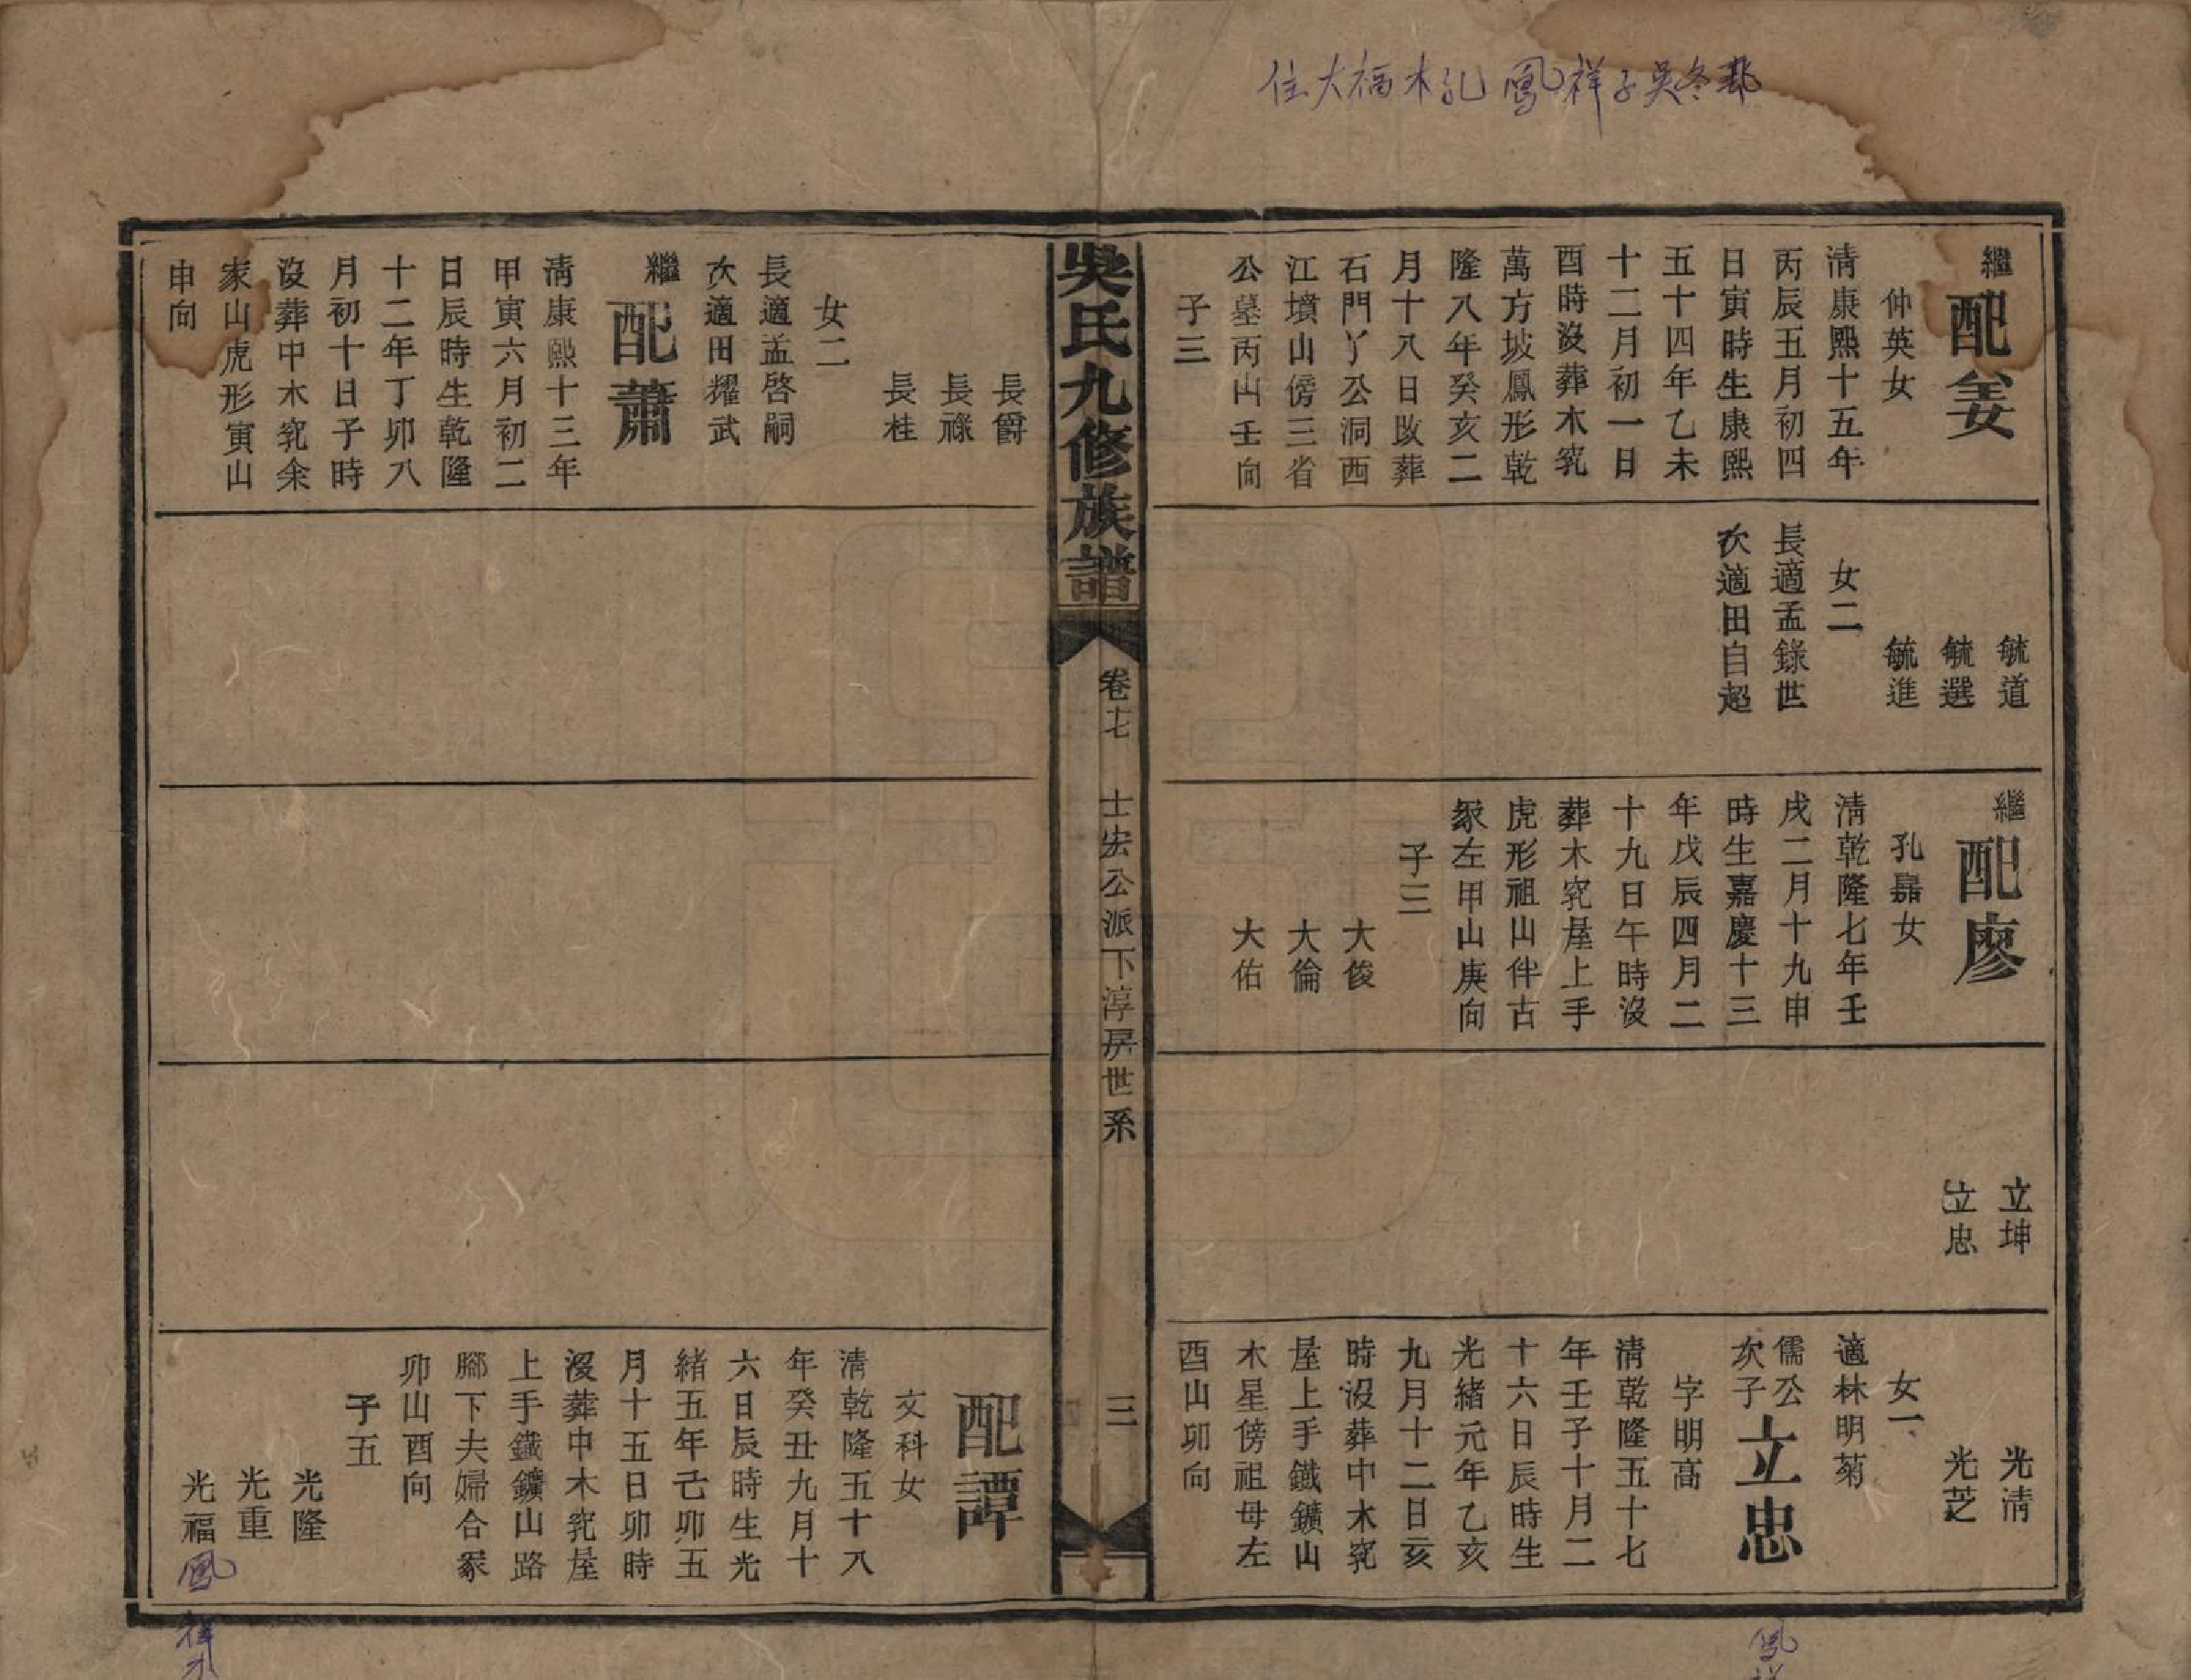 住大福木孔鳳祥子吳冬
繼配姜
仲英女
清康熙十五年
丙辰五月初四
日寅時生康熙
五十四年乙未
十二月初一日
酉時沒葬木𥤮
萬方坡鳳形乾
隆八年癸亥二
月十八日改葬
石門丫公洞西
江墳山傍三省
公墓丙山壬向
子三
毓道
毓選
毓進
女二
長適孟錄世
次適田自超
繼配廖
孔嘉女
清乾隆七年壬
戌二月十九申
時生嘉慶十三
年戊辰四月二
十九日午時沒
葬木𥤮屋上手
虎形祖山伴古
冢左甲山庚向
子三
大俊
大倫
大佑
立坤
立忠
光清
光芝
女一
適林明菊
儒公次子立忠
字明高
清乾隆五十七
年壬子十月二
十六日辰時生
光緒元年乙亥
九月十二日亥
時沒葬中木𥤮
屋上手鐵鑛山
木星傍祖母左
酉山卯向
鳳
吳氏九修族譜
卷十七
士宏公派下淳房世系
三
長爵
長祿
長桂
女二
長適孟啓嗣
次適田耀武
繼配蕭
清康熙十三年
甲寅六月初二
日辰時生乾隆
十二年丁卯八
月初十日子時
沒葬中木𥤮余
家山虎形寅山
申向
配譚
文科女
清乾隆五十八
年癸丑九月十
六日辰時生光
緒五年己卯五
月十五日卯時
沒葬中木𥤮屋
上手鐵鑛山路
腳下夫婦合冢
卯山酉向
子五
光隆
光重
光福
鳳祥